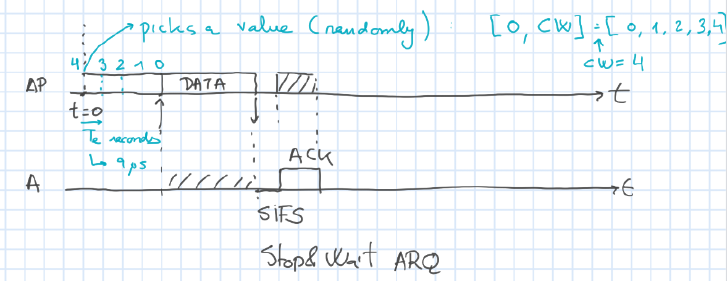 picks a value (randomly) [0, CW] = [0, 1, 2, 3, 4]
CW = 4
4 3 2 1 0
AP DATA t
t=0
Te seconds
↳ 9 μs
ACK
A t
SIFS
Stop & Wait ARQ